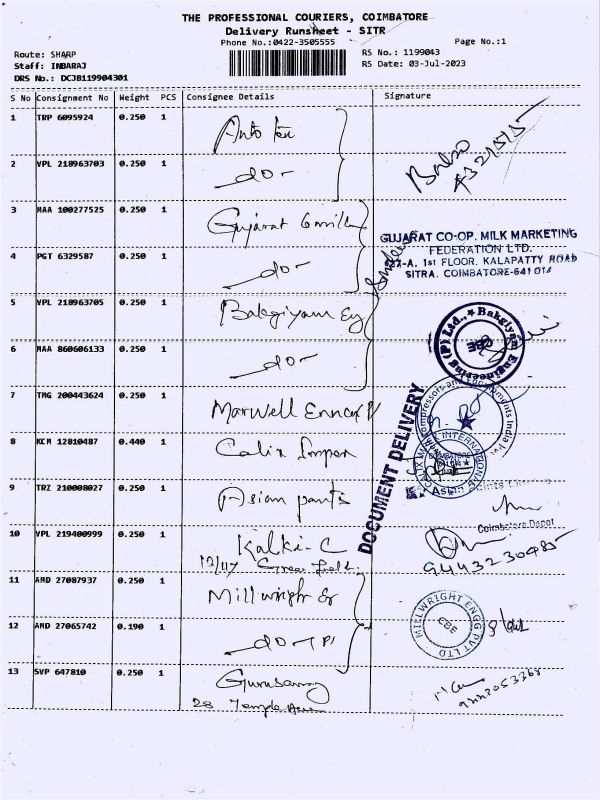 THE PROFESSIONAL COURIERS, COIMBATORE
Delivery Runsheet - SITR
Phone No.:0422-3505555
Page No.:1
Route: SHARP
Staff: INBARAJ
DRS No.: DCJB119904301
RS No.: 1199043
RS Date: 03-Jul-2023
S No Consignment No Weight PCS Consignee Details Signature
1 TRP 6095924 0.250 1
2 VPL 218963703 0.250 1 -do-
3 MAA 100277525 0.250 1 Gujarat
GUJARAT CO-OP. MILK MARKETING
FEDERATION LTD.
1st FLOOR, KALAPATTY ROAD
SITRA, COIMBATORE-641 014
4 PGT 6329587 0.250 1 -do-
5 VPL 218963705 0.250 1 Bakgiyam Eg
Bakgiyam Engineering (P) Ltd.,
CBE
6 MAA 860606133 0.250 1 -do-
7 TMG 200443624 0.250 1 Marwell
DOCUMENT DELIVERY
8 KCM 12810487 0.440 1 Calix Impex
9 TRZ 210008027 0.250 1 Asian paints
Coimbatore Depot
10 VPL 219400999 0.250 1 Kalki-C
Green Field
9443230485
11 AMD 27087937 0.250 1 Millwright Eg
MILLWRIGHT ENGG PVT LTD
CBE
12 AMD 27065742 0.190 1 -do-
13 SVP 647810 0.250 1 Gurusamy
28 Temple